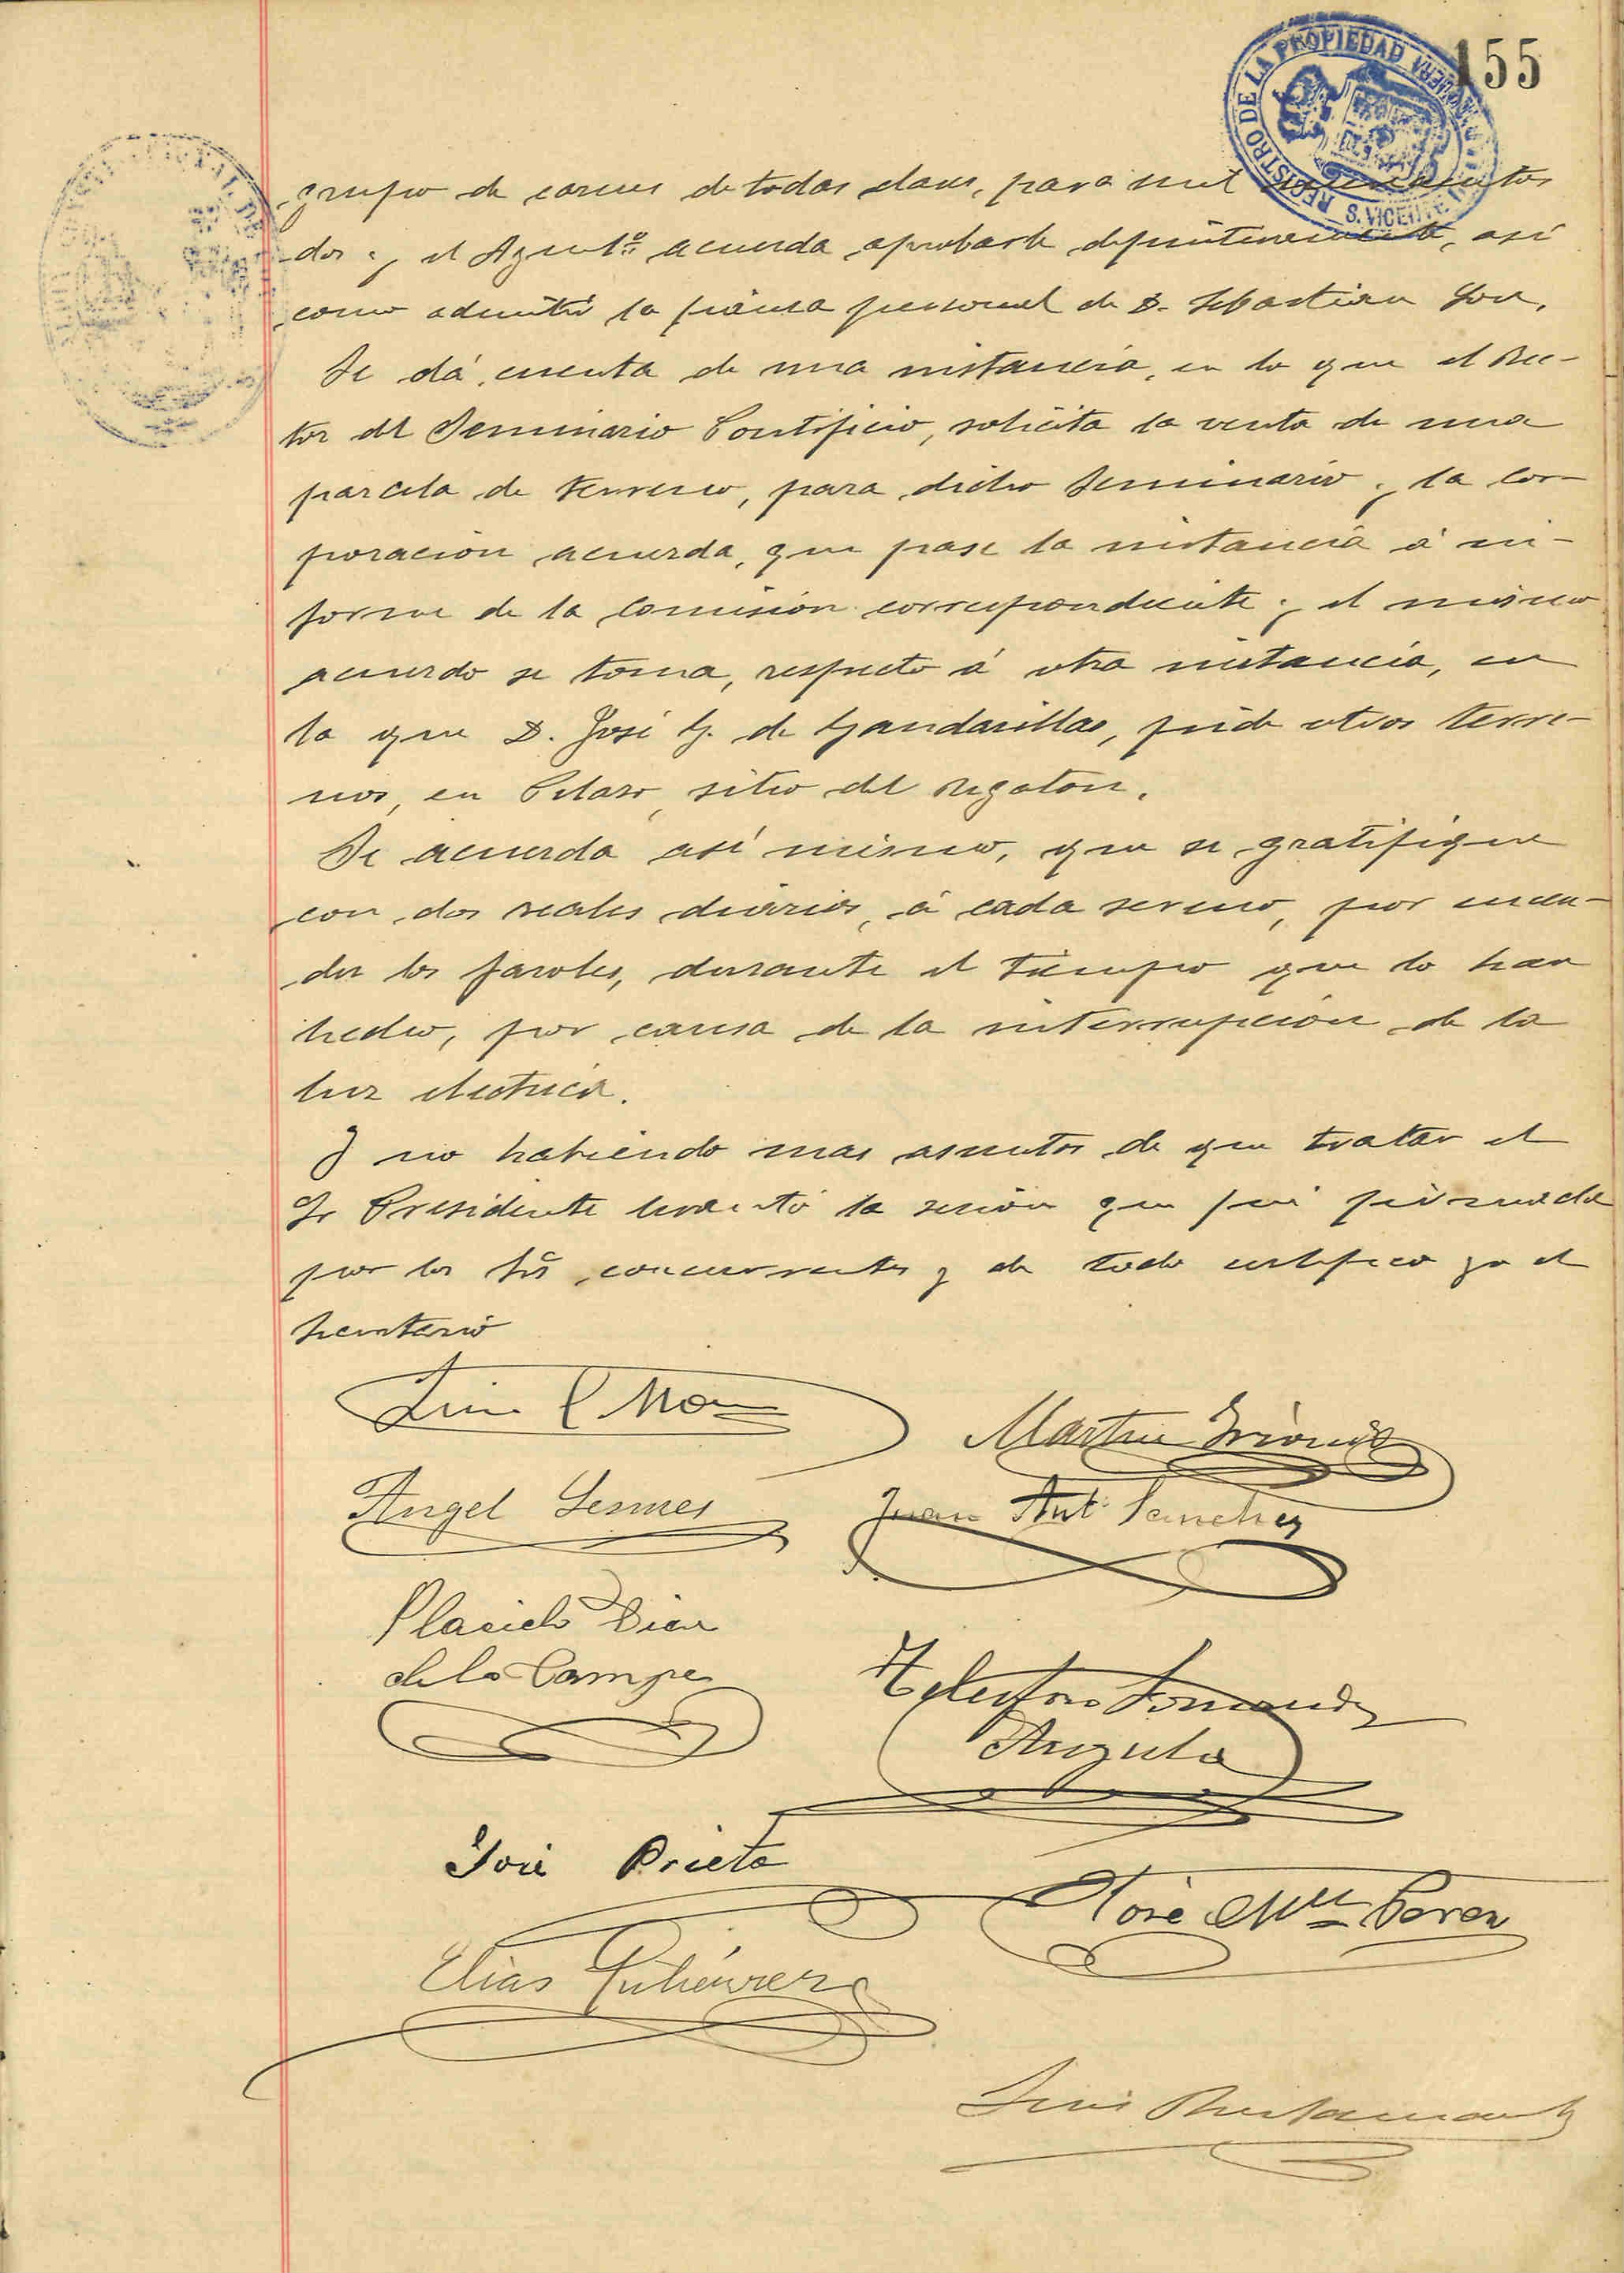 155
REGISTRO DE LA PROPIEDAD
S. VICENTE BARQUERA
grupo de carnes de todas clases, para mil
dos; y el Ayuntº acuerda aprobarle definitivamente, así
como admitir la fianza personal de D. Sebastian
Se dá cuenta de una instancia, en la que el Rec-
tor del Seminario Pontificio, solicita la venta de una
parcela de terreno, para dicho Seminario; la cor-
poración acuerda, que pase la instancia á in-
forme de la Comisión correspondiente; el mismo
acuerdo se toma, respecto á otra instancia, en
la que D. José G. de Gandarillas, pide otros terre-
nos, en sitio del Regaton.
Se acuerda así mismo, que se gratifique
con dos reales diarios, á cada sereno, por encen-
der los faroles, durante el tiempo que lo han
hecho, por causa de la interrupción de la
luz electrica.
Y no habiendo mas asuntos de que tratar el
Sr Presidente levantó la sesión que fué firmada
por los Srs concurrentes y de todo certifico yo el
Secretario
Martin
Angel Lesmes
Juan Antº Sanchez
Placido Diaz
de la Campa
Telesforo Fernandez
Angulo
José Prieto
José Mª Perez
Elias Gutiérrez
Luis Bustamante